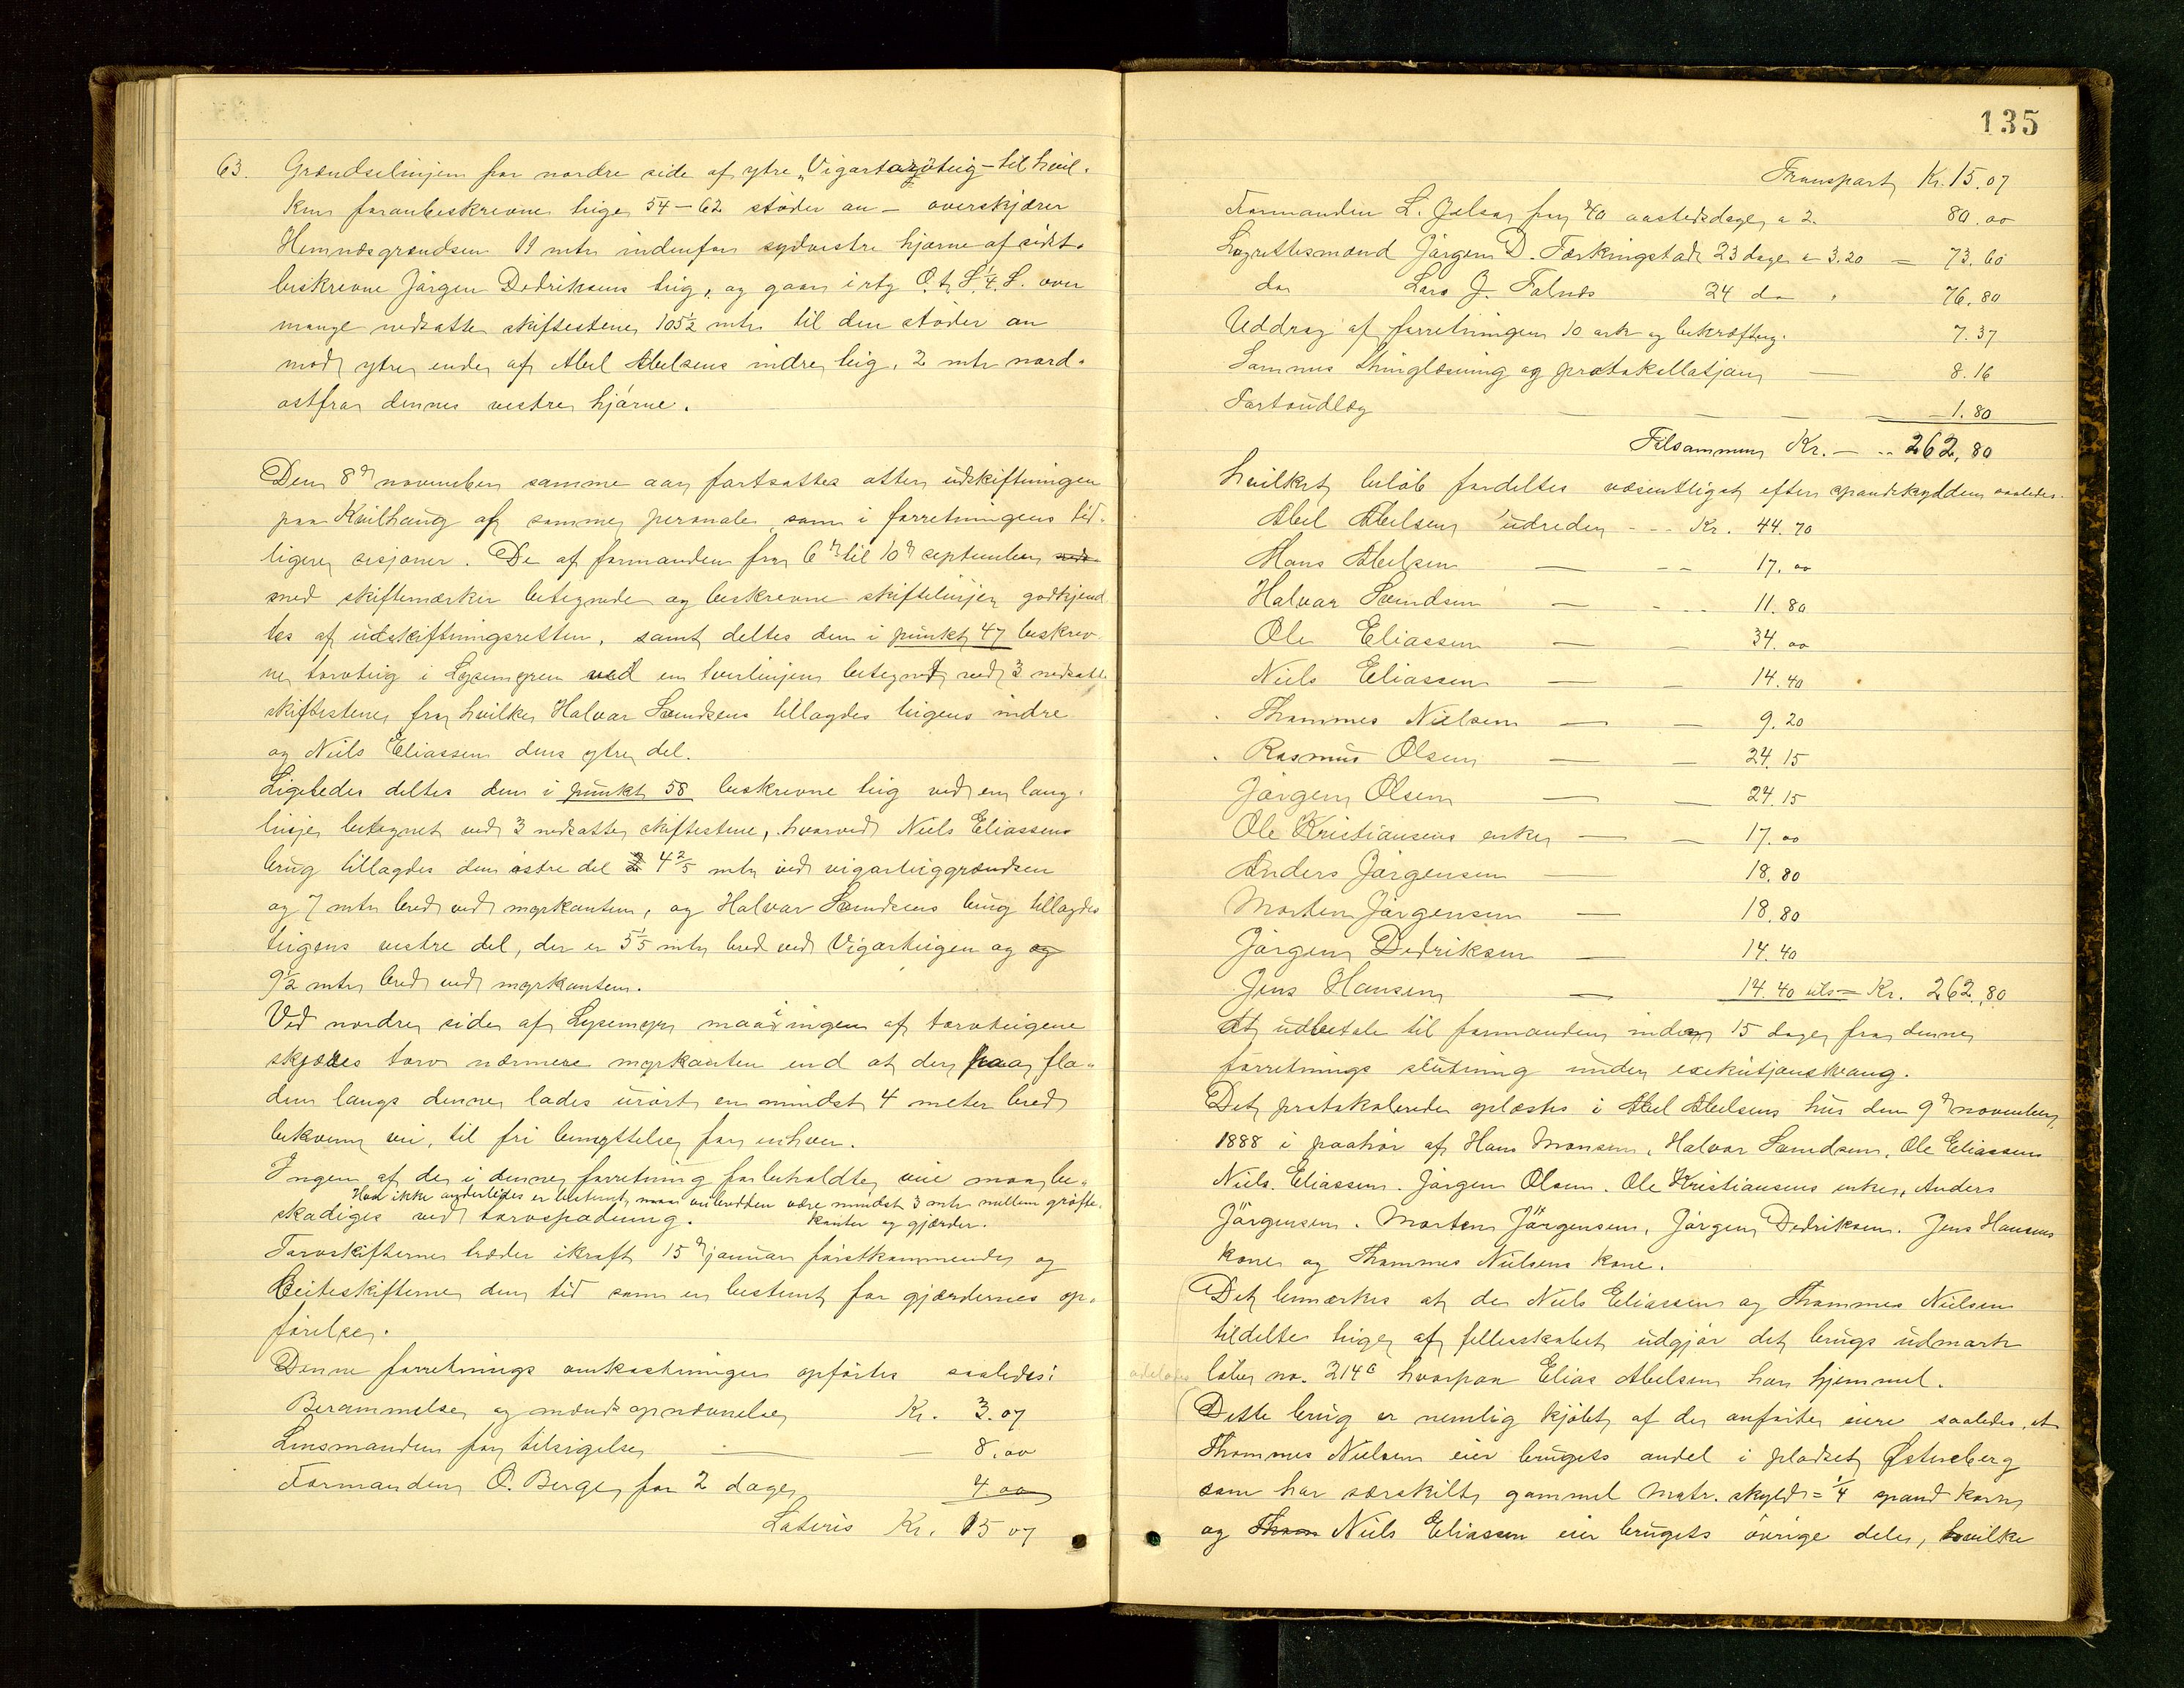 63. Grændselinjen for nordre side af ytre "Vigartorvteig - til hvil.
ken foranbeskrevne teige 54-62 støder an - overskjærer
Hemnæsgrændsen 19 mtr indenfor sydvestre hjørne af sidst.
beskrevne Jørgen Dedriksens teig, og gaar i rtg O.t.S.¼.S. over
mange nedsatte skiftestene 105½ mtr til den støder an
mod ytre ende af Abel Abelsens indre teig, 2 mtr nord.
ostfra dennes vestre hjørne.
Den 8de november samme aar fortsattes atter udskiftningen
paa Kvilhaug af samme personale som i forretningens tid.
ligere sesjoner. De af formanden fra 6te til 10de september
med skiftemærker betegnede og beskrevne skiftelinjer godkjend
tes af udskiftningsretten, samt deltes den i punkt 47 beskrev
ne torvteig i Lysemyren ved en tverlinjen betegnet ved 3 nedsatte
skiftestene fra hvilke Halvar Svendsens tillagdes teigens indre
og Niels Eliassen dens ytre del.
Ligeledes deltes den i punkt 58 beskrevne teig ved en lang.
linje betegnet ved 3 nedsatte skiftestene, hvorved Niels Eliassens
brug tillagdes den østre del 4⅖ mtr ved vigarteiggrændsen
og 7 mtr bred ved myrkanten, og Halvar Svendsens brug tillagdes
teigens vestre del, der er 5⅕ mtr bred ved Vigarteigen og og
9½ mtr bred ved myrkanten.
Ved nordre side af Lysemyr maa i ingen af torvteigene
skjæres torv nærmere myrkanten end at der paa fla-
den langs denne lades urørt en mindst 4 meter bred
bekvem vei, til fri benyttelse for enhver.
Ingen af de i denne forretning forbeholdte veie maa be.
Hvor ikke anderledes er bestemt, maa veibredden være mindst 3 mtr mellem grøfte.
skadiges ved torvspadning. kanter og gjærder.
Torvskifterne træder ikraft 15de januar førstkommende og
Beiteskifterne den tid som er bestemt for gjærdernes op.
førelse.
Denne forretnings omkostninger opførtes saaledes:
Berammelse og mænds opnævnelse Kr. 3.07
Lensmanden for tilsigelse — 8.00
Formanden O. Berge for 2 dage 4.00
Lateris Kr. 15 07
135
Transport Kr. 15.07
Formanden L. Jelsa for 40 aastedsdage a 2. 80.00
Lagrettesmænd Jørgen D. Førkingstad 23 dage a 3.20 — 73.60
do Lars J. Falnes 24 do " 76.80
Uddrag af forretningen 10 ark og bekræftng. 7.37
Sammes thinglæsning og protokollatjon — 8.16
Portoudlæg — — — 1.80
Tilsammen Kr. — -- 262,80
hvilket beløb fordeltes væsentligst efter spandskylden saaledes.
Abel Abelsen udreder - -- Kr. 44.70
Hans Abelsen — -- 17.00
Halvar Svendsen — --- 11.80
Ole Eliassen — — 34.00
Niels Eliassen — — 14.40
Thommes Nielsen — — 9.20
Rasmus Olsen — — 24.15
Jørgen Olsen — — 24.15
Ole Kristiansens enke — — 17.00
Anders Jørgensen — 18.80
Morten Jørgensen — 18.80
Jørgen Dedriksen — 14.40
Jens Hansen — 14.40 tils = Kr. 262,80
At udbetale til formanden inden 15 dage fra denne
forretnings slutning under exekutjonstvang.
Det protokolerede oplæstes i Abel Abelsens hus den 9de november
1888 i paahør af Hans Monsen, Halvor Svendsen, Ole Eliassen
Niels Eliassen. Jørgen Olsen. Ole Kristiansens enke, Anders
Jørgensen. Morten Jørgensen, Jørgen Dedriksen. Jens Hansens
kone og Thommes Nielsens kone.
Det bemærkes at de Niels Eliassen og Thommes Nielsen
tildelte teige af fellesskabet udgjør det brugs udmark
løbe no. 214c hvorpaa Elias Abelsen har hjemmel.
Dette brug er nemlig kjøbt af de anførte eiere saaledes, at
Thommes Nielsen eier brugets andel i pladset Østereberg
som har særskilt gammel Matr. skyld = ¼ spand korn
og Thom Niels Eliassen eier brugets øvrige dele, hvilke